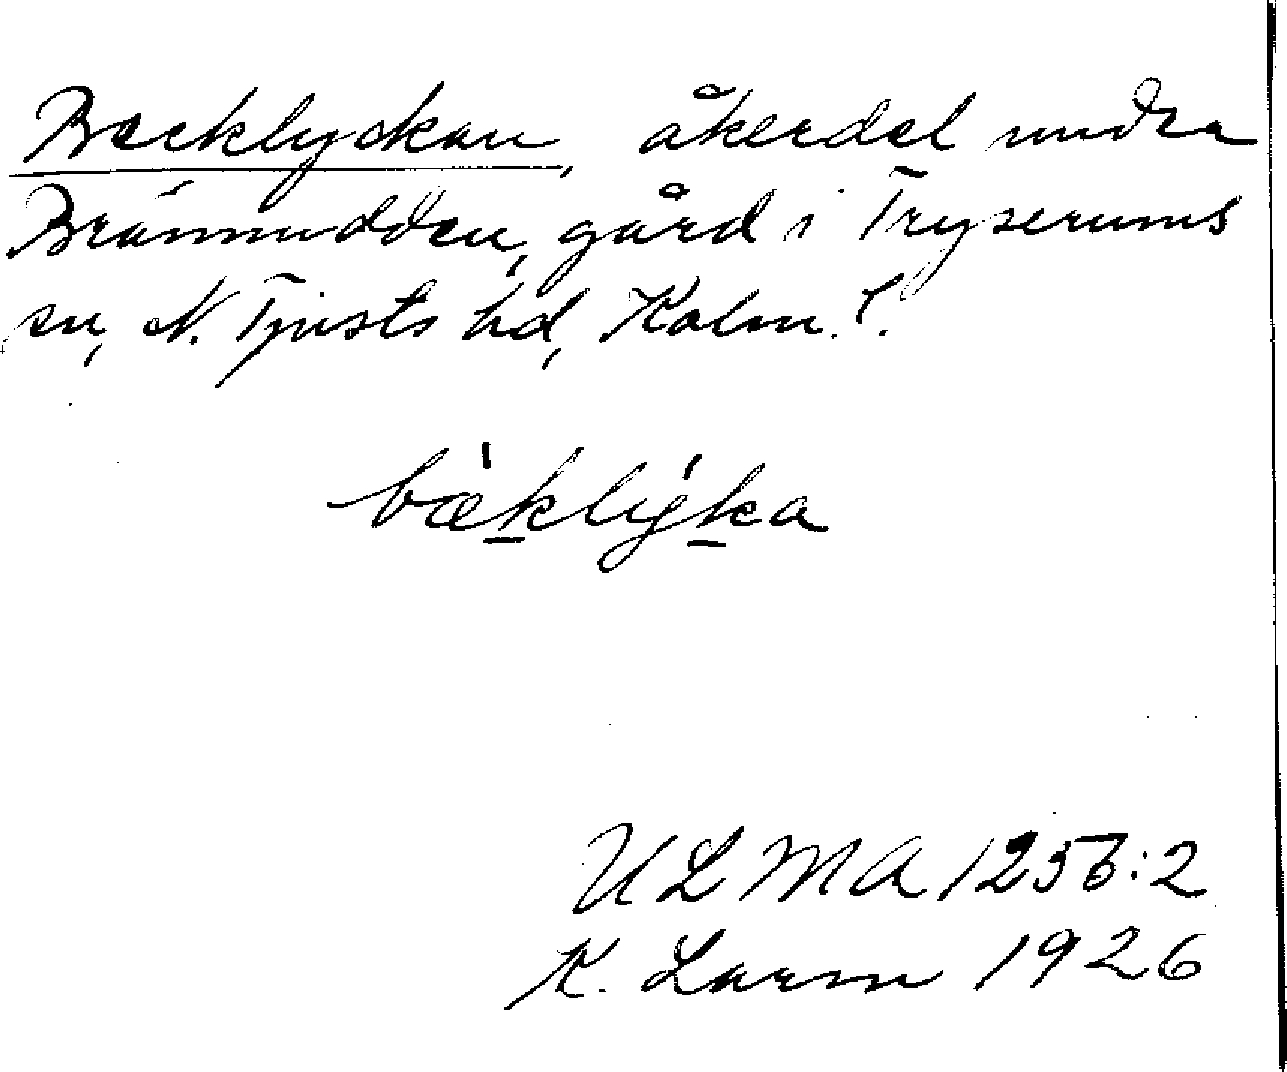 Becklyckan, åkerdel under
Brånnudden, gård i Tryserums
sn, N. Tjusts hd, Kalm. l.
bæ̀klýka
ULMA 1256:2
K. Larm 1926